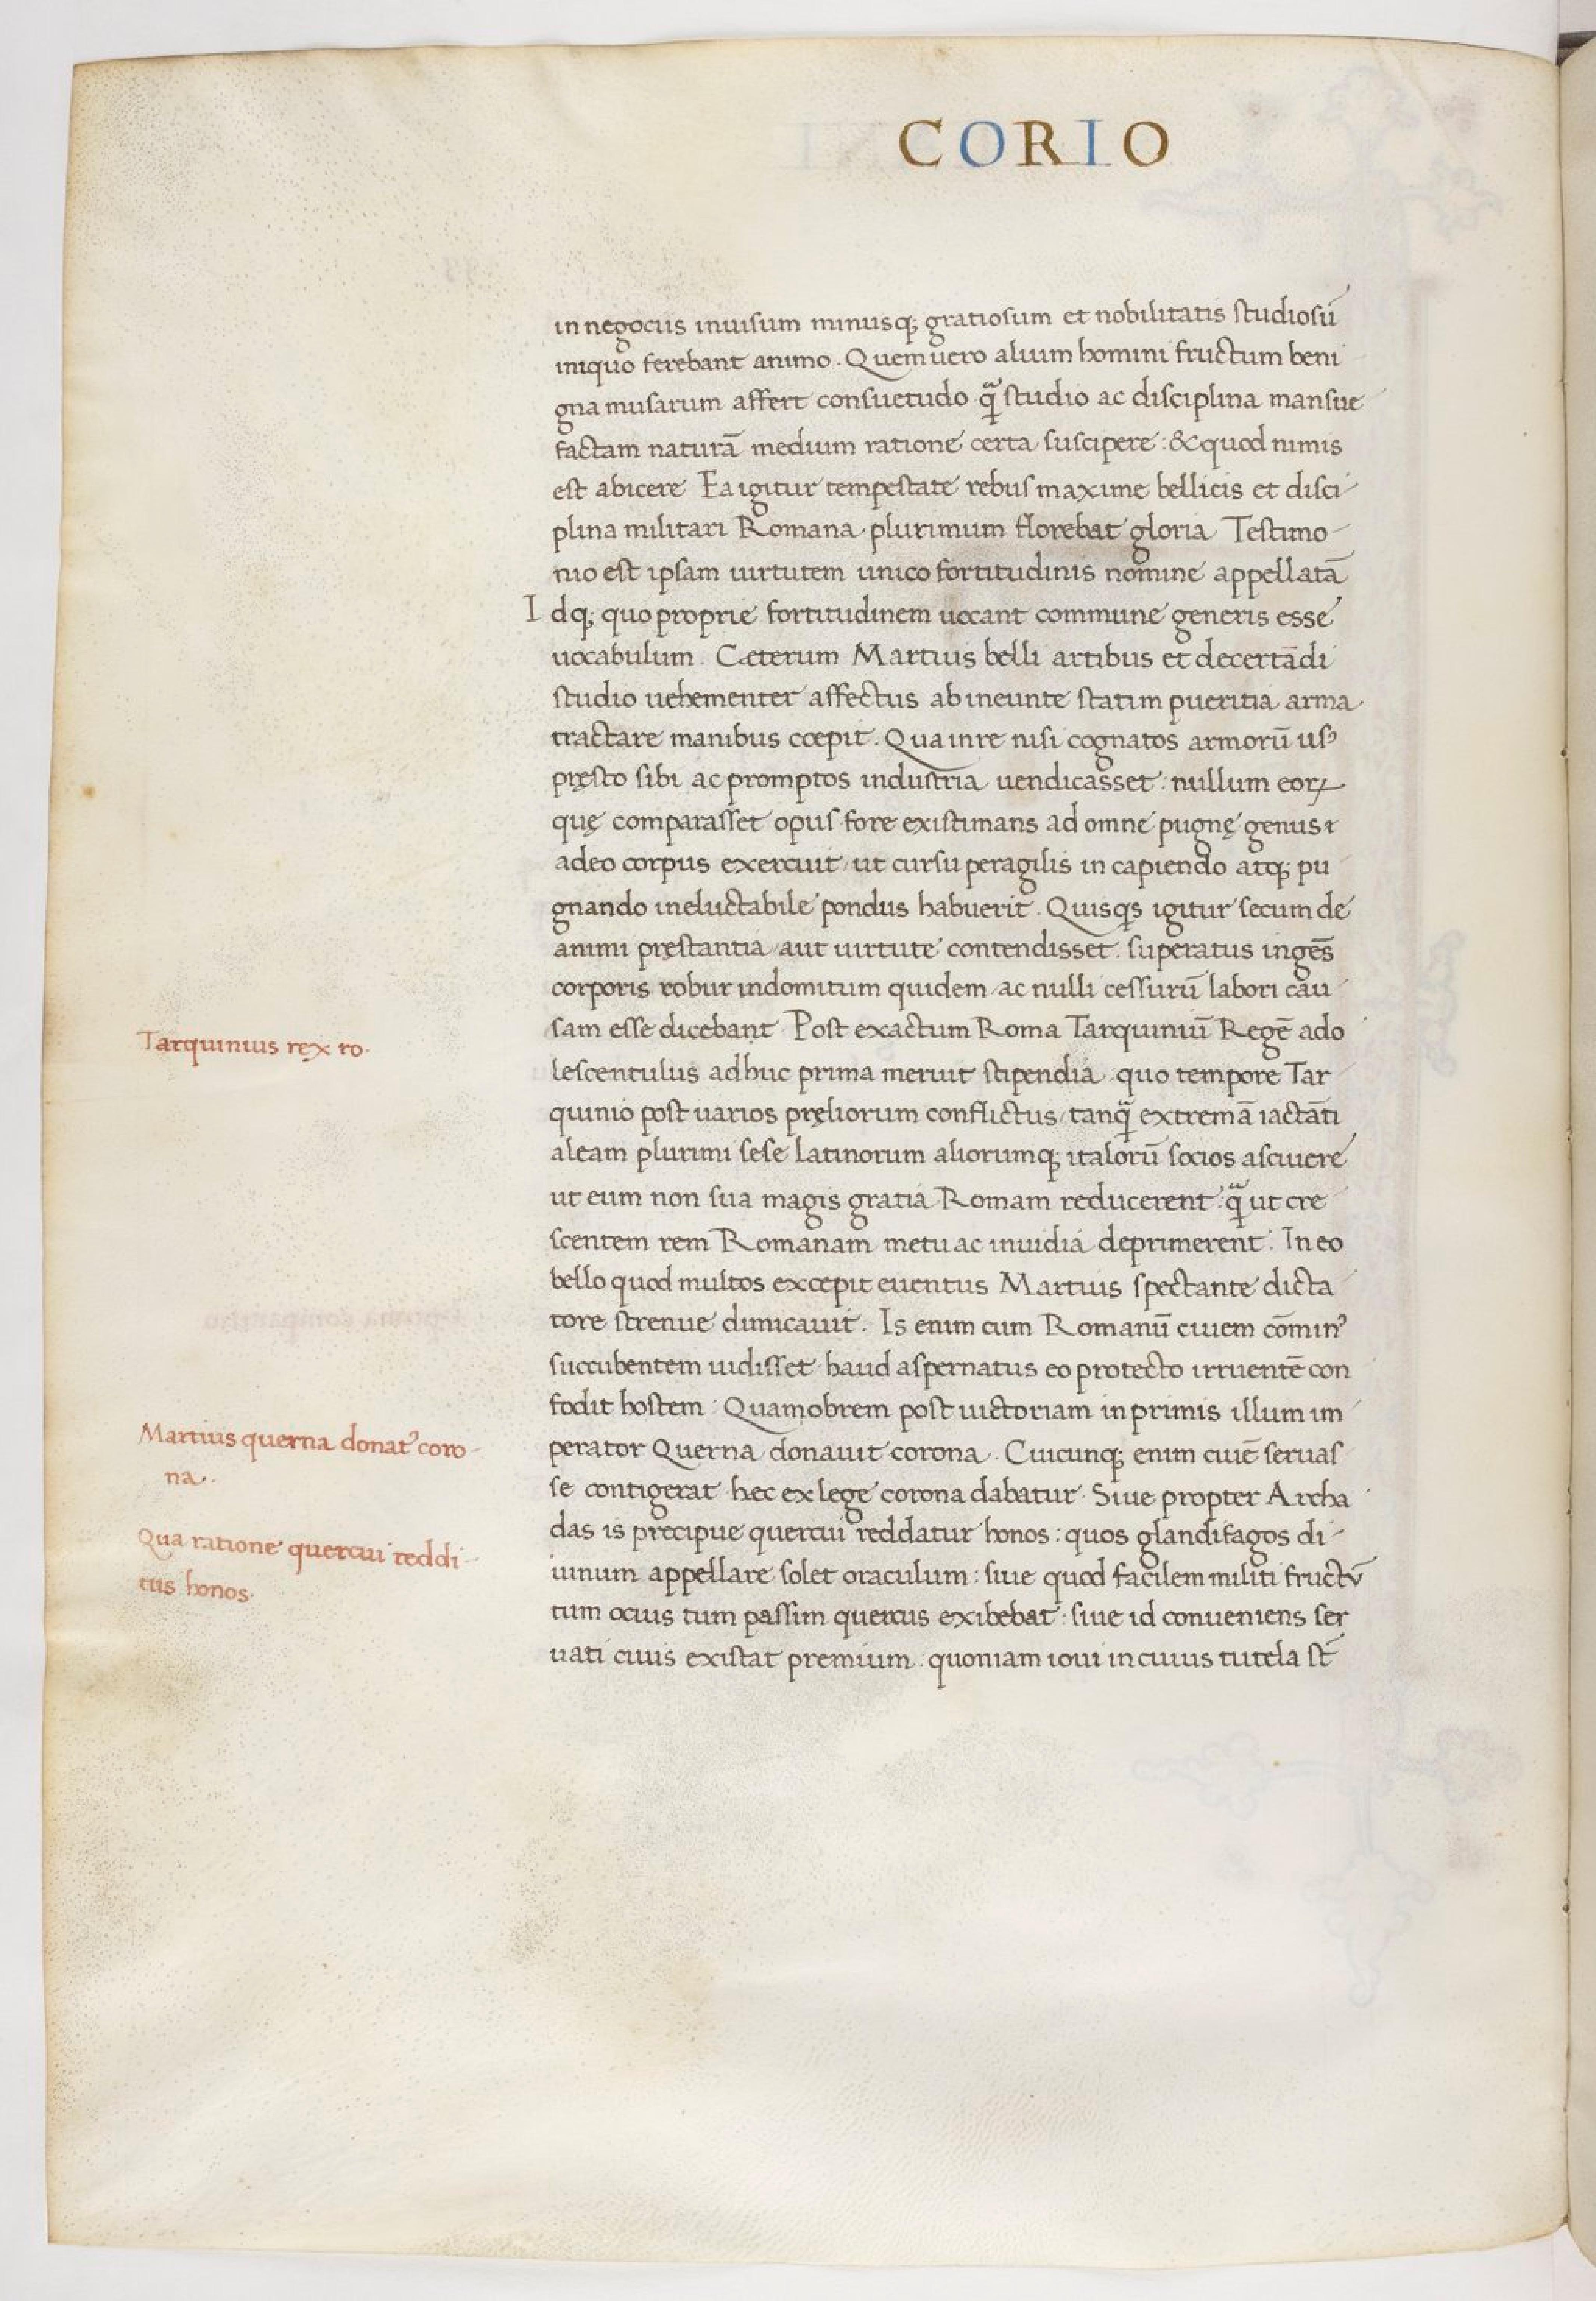 CORIO
in negociis inuisum minusq; gratiosum et nobilitatis studiosū
iniquo ferebant animo. Quem uero alium homini fructum beni
gna musarum affert consuetudo q̄ studio ac disciplina mansue
factam naturā medium ratione certa suscipere: & quod nimis
est abicere Ea igitur tempestate rebus maxime bellicis et disci-
plina militari Romana plurimum florebat gloria Testimo-
nio est ipsam uirtutem unico fortitudinis nomine appellatā
Idq; quo proprie fortitudinem uocant commune generis esse
uocabulum. Cæterum Martius belli artibus et decertādi
studio uehementer affectus ab ineunte statim pueritia arma
tractare manibus cœpit. Qua in re nisi cognatos armorū usꝰ
pręsto sibi ac promptos industria uendicasset: nullum eoꝝ
quę comparasset opus fore existimans ad omne pugnę genus
adeo corpus exercuit, ut cursu peragilis in capiendo atq; pu
gnando ineluctabile pondus habuerit. Quisq̄s igitur secum de
animi pręstantia, aut uirtute contendisset. superatus ingēs
corporis robur indomitum quidem, ac nulli cessurū labori cau
sam esse dicebant Post exactum Roma Tarquiniū Regē ado
Tarquinius ręx ro.
lescentulus adhuc prima meruit stipendia quo tempore Tar
quinio post uarios pręliorum conflictus, tanq̄ extremā iactāti
aleam plurimi sese Latinorum aliorumq; italorū socios asciuere
ut eum non sua magis gratia Romam reducerent: q̄ ut cre
scentem rem Romanam metu ac inuidia deprimerent. In eo
bello quod multos excepit euentus Martius spectante dicta
tore strenue dimicauit. Is enim cum Romanū ciuem cōminꝰ
succubentem uidisset haud aspernatus eo protecto irruentē con
fodit hostem: Quamobrem post uictoriam in primis illum im
perator Querna donauit corona. Cuicunq; enim ciuē seruas
Martius querna donatꝰ coro-
na.
se contigerat hec ex lege corona dabatur. Siue propter Archa
das is precipue quercui reddatur honos: quos glandifagos di-
Qua ratione quercui reddi-
tus honos.
uinum appellare solet oraculum: siue quod facilem militi fructū
tum ocius tum passim quercus exibebat: siue id conueniens ser
uati ciuis existat premium: quoniam ioui in cuius tutela st̄